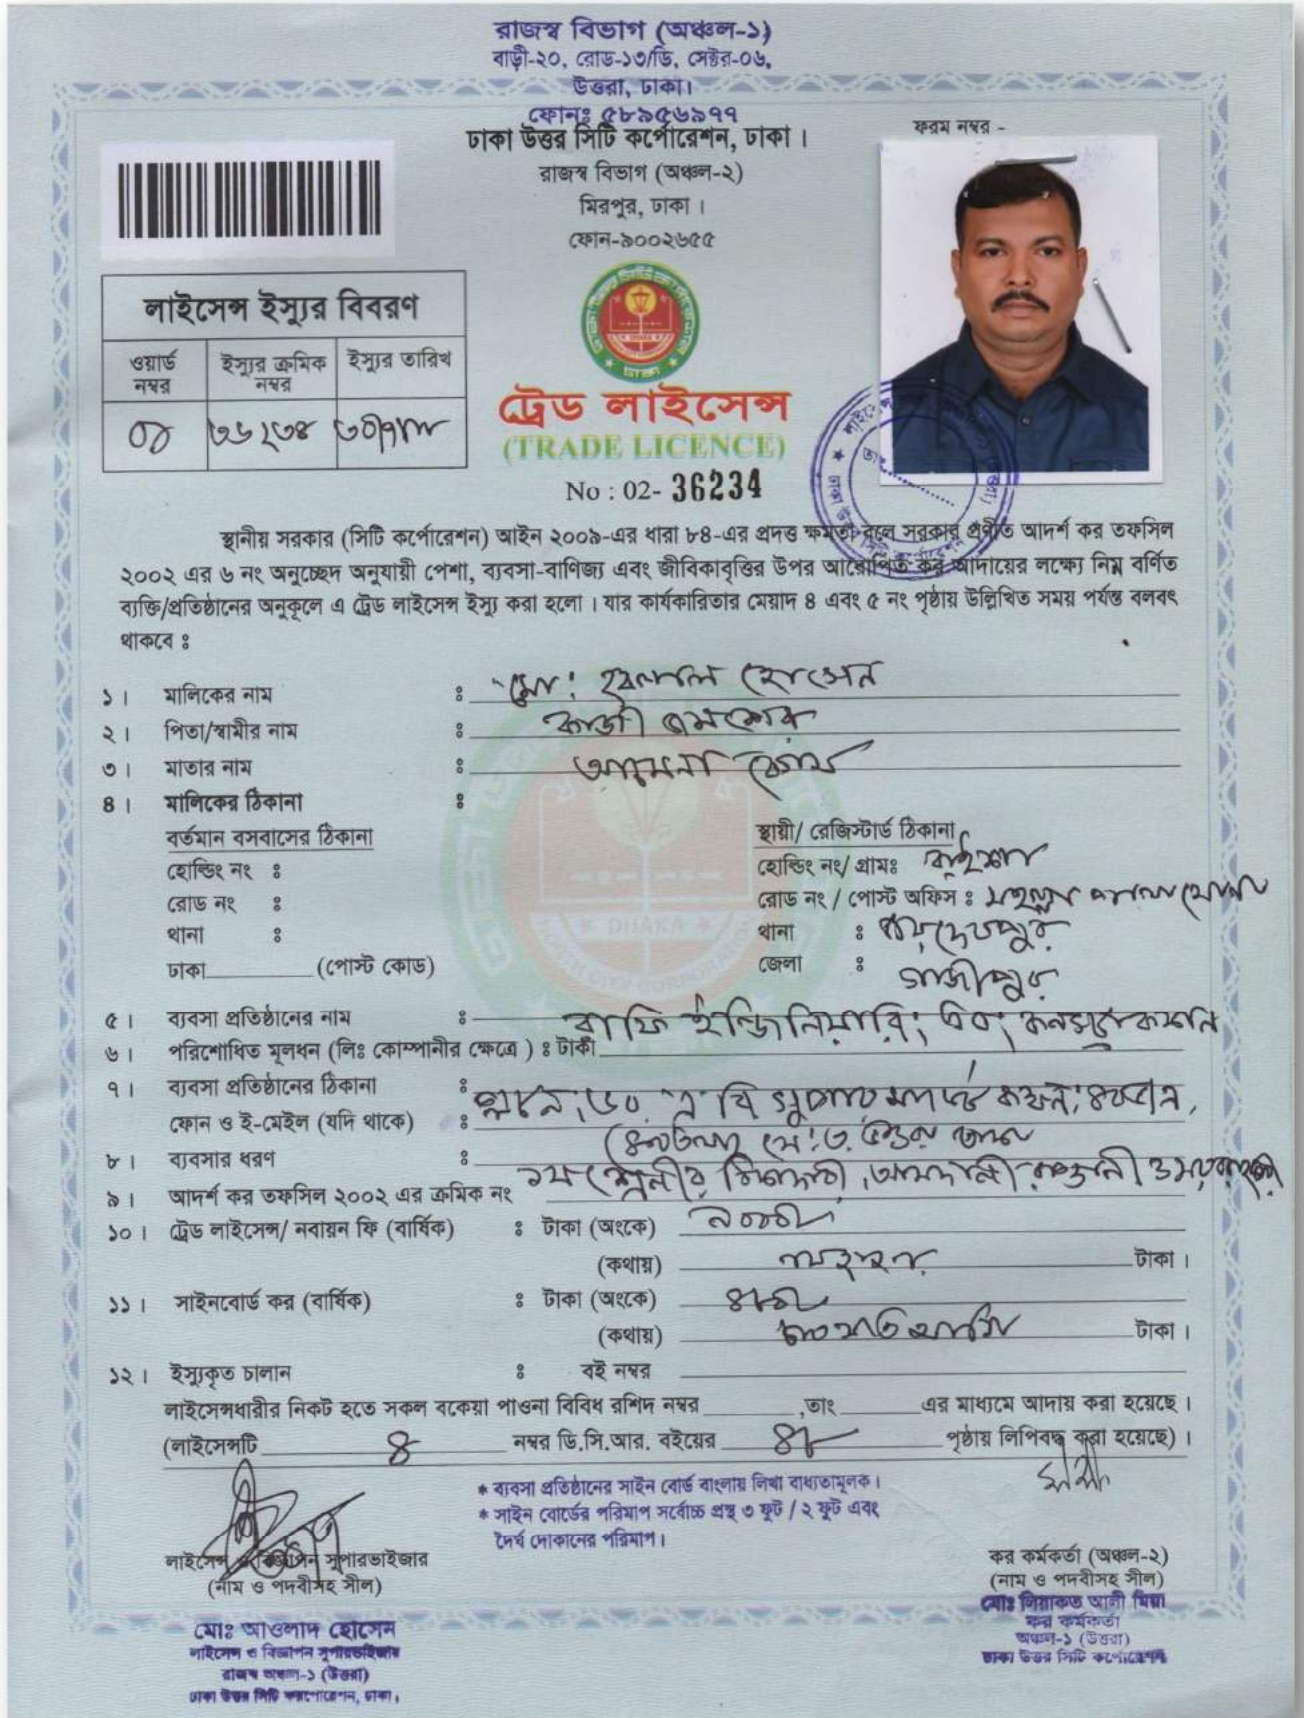 রাজস্ব বিভাগ (অঞ্চল-১)
বাড়ী-২০, রোড-১৩/ডি, সেক্টর-০৬,
উত্তরা, ঢাকা।
ফোনঃ ৫৮৯৫৬৯৭৭
ঢাকা উত্তর সিটি কর্পোরেশন, ঢাকা।
রাজস্ব বিভাগ (অঞ্চল-২)
মিরপুর, ঢাকা।
ফোন-৯০০২৬৫৫
ফরম নম্বর -
লাইসেন্স ইস্যুর বিবরণ
ওয়ার্ড নম্বর
ইস্যুর ক্রমিক নম্বর
ইস্যুর তারিখ
০১ ৩৬২৩৪
ট্রেড লাইসেন্স
(TRADE LICENCE)
No : 02- 36234
স্থানীয় সরকার (সিটি কর্পোরেশন) আইন ২০০৯-এর ধারা ৮৪-এর প্রদত্ত ক্ষমতা বলে সরকার প্রণীত আদর্শ কর তফসিল
২০০২ এর ৬ নং অনুচ্ছেদ অনুযায়ী পেশা, ব্যবসা-বাণিজ্য এবং জীবিকাবৃত্তির উপর আরোপিত কর আদায়ের লক্ষ্যে নিম্ন বর্ণিত
ব্যক্তি/প্রতিষ্ঠানের অনুকূলে এ ট্রেড লাইসেন্স ইস্যু করা হলো। যার কার্যকারিতার মেয়াদ ৪ এবং ৫ নং পৃষ্ঠায় উল্লিখিত সময় পর্যন্ত বলবৎ
থাকবে ঃ
১। মালিকের নাম ঃ মো: হোসেন
২। পিতা/স্বামীর নাম ঃ কাজী
৩। মাতার নাম ঃ
৪। মালিকের ঠিকানা ঃ
বর্তমান বসবাসের ঠিকানা
হোল্ডিং নং ঃ
রোড নং ঃ
থানা ঃ
ঢাকা (পোস্ট কোড)
স্থায়ী/ রেজিস্টার্ড ঠিকানা
হোল্ডিং নং/ গ্রামঃ
রোড নং / পোস্ট অফিস ঃ
থানা ঃ জয়দেবপুর
জেলা ঃ গাজীপুর
৫। ব্যবসা প্রতিষ্ঠানের নাম ঃ রাফি ইন্জিনিয়ারিং এন্ড কনসট্রাকশন
৬। পরিশোধিত মূলধন (লিঃ কোম্পানীর ক্ষেত্রে) ঃ টাকা
৭। ব্যবসা প্রতিষ্ঠানের ঠিকানা ঃ
ফোন ও ই-মেইল (যদি থাকে) ঃ
৮। ব্যবসার ধরণ ঃ ১ম শ্রেনীর ঠিকাদারী, আমদানী রপ্তানী ও সরবরাহকারী
৯। আদর্শ কর তফসিল ২০০২ এর ক্রমিক নং
১০। ট্রেড লাইসেন্স/ নবায়ন ফি (বার্ষিক) ঃ টাকা (অংকে)
(কথায়) টাকা।
১১। সাইনবোর্ড কর (বার্ষিক) ঃ টাকা (অংকে)
(কথায়) টাকা।
১২। ইস্যুকৃত চালান ঃ বই নম্বর
লাইসেন্সধারীর নিকট হতে সকল বকেয়া পাওনা বিবিধ রশিদ নম্বর ,তাং এর মাধ্যমে আদায় করা হয়েছে।
(লাইসেন্সটি ৪ নম্বর ডি.সি.আর. বইয়ের পৃষ্ঠায় লিপিবদ্ধ করা হয়েছে)।
* ব্যবসা প্রতিষ্ঠানের সাইন বোর্ড বাংলায় লিখা বাধ্যতামূলক।
* সাইন বোর্ডের পরিমাপ সর্বোচ্চ প্রস্থ ৩ ফুট / ২ ফুট এবং
দৈর্ঘ দোকানের পরিমাপ।
লাইসেন্স ও বিজ্ঞাপন সুপারভাইজার
(নাম ও পদবীসহ সীল)
মোঃ আওলাদ হোসেন
লাইসেন্স ও বিজ্ঞাপন সুপারভাইজার
রাজস্ব অঞ্চল-১ (উত্তরা)
ঢাকা উত্তর সিটি কর্পোরেশন, ঢাকা।
কর কর্মকর্তা (অঞ্চল-২)
(নাম ও পদবীসহ সীল)
মোঃ লিয়াকত আলী মিয়া
কর কর্মকর্তা
অঞ্চল-১ (উত্তরা)
ঢাকা উত্তর সিটি কর্পোরেশন